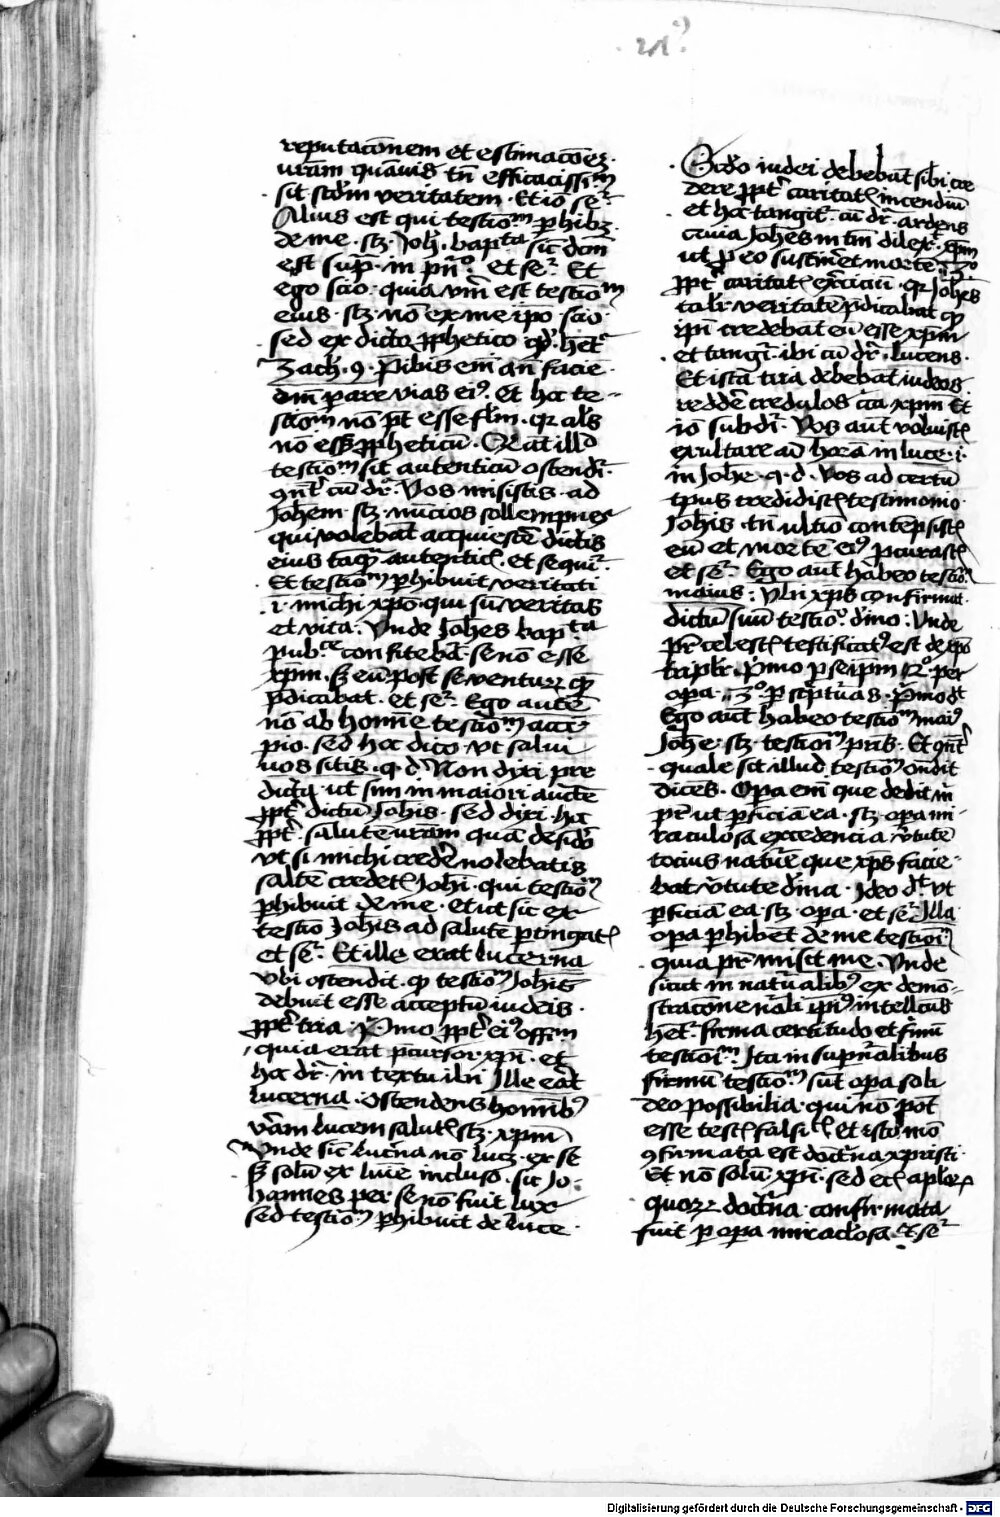 reputac̄onem et estimac̄oēz
vr̄am quāuis tn̄ efficacissiᵐ
sit scd̄m veritatem · Et iō ser̄
Alius est qui testioᵐ phibz
de me · scz · Joh̄ · baptᵃ sic dc̄m
est sup̄ · in pn̄° · et ser̄ · Et
ego scio · quia vm̄ est testioᵐ
eius · scz · nō ex me ip̄o scio
sed ex dicto ꝓphetico qd̄ · het̄
Zach̄ · 9 · P̄ibis em̄ an̄ facie
dn̄i parare vias ei⁹ · et h̄ te-
stioᵐ nō pt̄ esse fl̄m · qr al̄s
nō ess; ꝓpheticū · Qd̄ at̄ illd
testioᵐ sit autenticū ostendr̄ ·
ꝯn̄t cū dr̄ · Vos misistis · ad
Joh̄em · scz · nūcios sollempnes
qui volebāt acquiescē dict̄is
eius tāqᵃ autenticꝭ · et sequr̄
Et testioᵐ phibuit veritati
·i· michi xp̄o · qui sū veritas
et vita · Vnde Joh̄es bapᵗᵃ
pub̄ᶜᵉ confitebāt · se nō esse
xp̄m · sꝫ eū post se venturꝝ qꝫ
p̄dicabat · et ser̄ · Ego autē
nō ab homīe testioᵐ acci-
pio · sed h̄ dico vt salui
vos sitis · q · d · Non dixi pre
dictꝫ ut sim in maiori auct̄e
ꝓpt̄ dictū Joh̄is · sed dixi · h̄
ꝓpt̄ · salutē vr̄am quā desidō
vt si michi credē nolebatis
saltē credetꝭ Joh̄i · qui testioᵐ
phibuit de me · et ut sic ex
testio Joh̄is ad salutē ptingatꝭ
et ser̄ · Et ille erat lucerna
vbi ostendit · qꝫ testioᵐ Joh̄is
debuit esse acceptū iudeis ·
ꝓpt̄ tria · P̄mo ꝓpt̄ ei⁹ offm̄
quia erat p̄cursor · xp̄i · et
h̄ dr̄ · in textu ibi Ille erāt
lucerna · ostendens homīb⁹
vr̄am lucem salutꝭ scz · xp̄m
Vnde sic̄ lucr̄na nō lucꝫ · ex se
sꝫ solū ex lumīe incluso · sic Jo-
hannes per se nō fuit lux
sed testioᵐ phibuit de luce ·
Scd̄o iudei debebāt sibi cre
dere ꝓpt̄ caritatꝭ incendiū
et h̄ tangit̄ · cū dr̄ · ardens
quia Joh̄es intm̄ dilexᵗ xp̄m
ut p eo sustineret mortē · 3°
ꝓpt̄ caritatꝭ exerciciū · qr Joh̄es
talr̄ veritatē p̄dicabat qꝫ
ip̄i credebāt eū esse xp̄m
et tangit̄ · ibi cū dr̄ · lucens ·
Et ista tria debebāt iudeos
reddē credulos circa xp̄m Et
iō subdr̄ · Vos aut̄ voluistꝭ
exultare ad horā in luce · i ·
in Joh̄e · q · d · Vos ad certū
tp̄us credidistꝭ testimonio
Joh̄is · tn̄ ultio contēpsistꝭ
eū et mortē ei⁹ p̄curastꝭ
et ser̄ · Ego aut̄ habeo testioᵐ
maius : Vbi xp̄s confirmat
dictū suū testio° · dīno · Vnde
pr̄ celestꝭ testificat⁹ est de xp̄o
triplr̄ · P̄mo p seip̄m 2° per
opa · 3° p scpturas · P̄mo dᵗ
Ego aut̄ habeo testioᵐ mai⁹
Joh̄e · scz · testioᵐ pris · Et ꝯn̄t
quale sit illud testioᵐ on̄dit
dicēs · Opa em̄ que dedit m̄
pr̄ ut pficiā ea · scz · opa mi-
raculosa excedencia v̄tutē
tocius nature que xp̄s facie-
bat v̄tute dīna · Ideo dᵗ vt
pficiā ea · scz · opa · et ser̄ Illa
opa phibet de me testioᵐ
quia pr̄ misit me · Vnde
sicut in naturalib⁹ ex demo-
strac̄one nob̄ ip̄i⁹ intellcūs
het̄ · firma certitudo et firmū
testioᵐ · Ita in supn̄alibus
firmū testioᵐ sūt opa soli
deo possibilia · qui nō pōt
esse testꝭ falsitꝭ · Et isto mō
ꝯfirmata est doctr̄na xpristi ·
Et nō solū xp̄i · sed ecꝭ aplorꝝ
quorꝝ doctr̄na confirmata
fuit p opa miraclosa · et ser̄